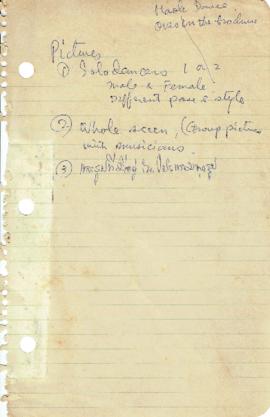 Mask Dance
over on the brochure
Pictures
① Solo dancers 1 or 2
male & Female
Different pose & style
② Whole screen, (Group picture
with musicians.
③